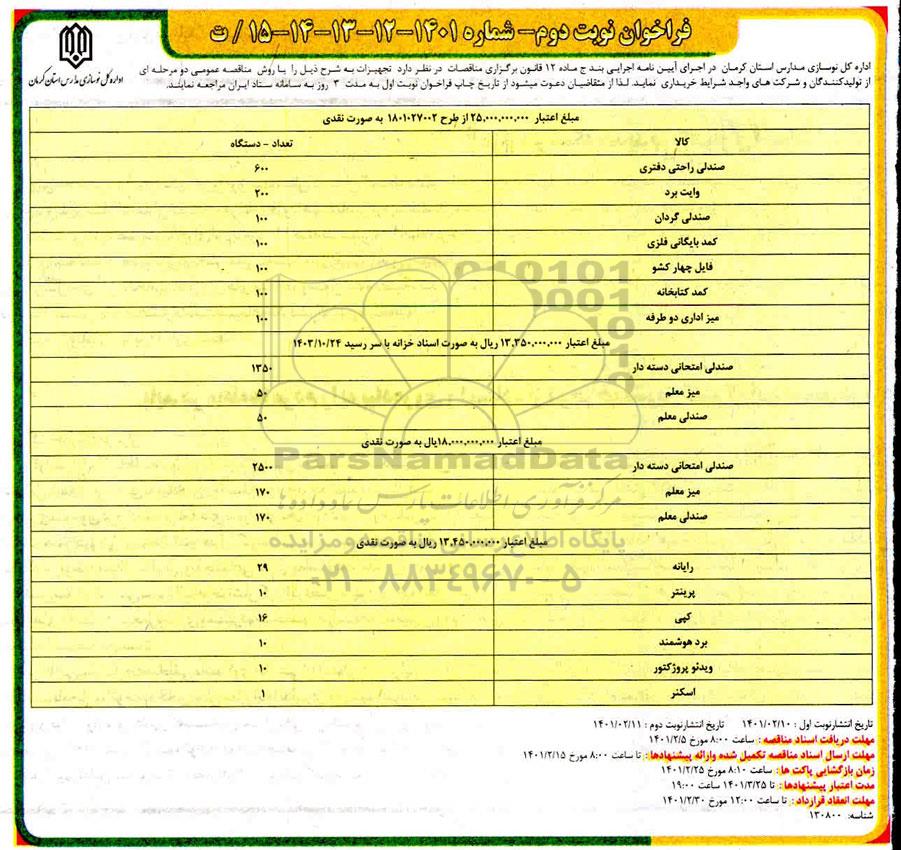 فراخوان نوبت دوم- شماره ۱۴۰۱-۱۲-۱۳-۱۴-۱۵ / ت
اداره کل نوسازی مدارس استان کرمان
اداره کل نوسازی مدارس استان کرمان در اجرای آیین نامه اجرایی بند ج ماده ۱۲ قانون برگزاری مناقصات در نظر دارد تجهیزات به شرح ذیل را با روش مناقصه عمومی دو مرحله ای
از تولیدکنندگان و شرکت های واجد شرایط خریداری نماید. لذا از متقاضیان دعوت میشود از تاریخ چاپ فراخوان نوبت اول به مدت ۳ روز به سامانه ستاد ایران مراجعه نمایند.
مبلغ اعتبار ۲۵,۰۰۰,۰۰۰,۰۰۰ از طرح ۱۸۰۱۰۲۷۰۰۲ به صورت نقدی
کالا تعداد - دستگاه
صندلی راحتی دفتری ۶۰۰
وایت برد ۲۰۰
صندلی گردان ۱۰۰
کمد بایگانی فلزی ۱۰۰
فایل چهار کشو ۱۰۰
کمد کتابخانه ۱۰۰
میز اداری دو طرفه ۱۰۰
مبلغ اعتبار ۱۳,۳۵۰,۰۰۰,۰۰۰ ریال به صورت اسناد خزانه با سر رسید ۱۴۰۳/۱۰/۲۴
صندلی امتحانی دسته دار ۱۳۵۰
میز معلم ۵۰
صندلی معلم ۵۰
مبلغ اعتبار ۱۸,۰۰۰,۰۰۰,۰۰۰یال به صورت نقدی
صندلی امتحانی دسته دار ۲۵۰۰
میز معلم ۱۷۰
صندلی معلم ۱۷۰
مبلغ اعتبار ۱۳,۴۵۰,۰۰۰,۰۰۰ ریال به صورت نقدی
رایانه ۲۹
پرینتر ۱۰
کپی ۱۶
برد هوشمند ۱۰
ویدئو پروژکتور ۱۰
اسکنر ۱
ParsNamadData
مرکز فرآوری اطلاعات پارس نماد داده ها
۰۲۱-۸۸۳۴۹۶۷۰-۵
تاریخ انتشارنوبت اول : ۱۴۰۱/۰۲/۱۰ تاریخ انتشارنوبت دوم : ۱۴۰۱/۰۲/۱۱
مهلت دریافت اسناد مناقصه : ساعت ۸:۰۰ مورخ ۱۴۰۱/۲/۵
مهلت ارسال اسناد مناقصه تکمیل شده وارائه پیشنهادها : تا ساعت ۸:۰۰ مورخ ۱۴۰۱/۲/۱۵
زمان بازگشایی پاکت ها : ساعت ۸:۱۰ مورخ ۱۴۰۱/۲/۲۵
مدت اعتبار پیشنهادها : تا ۱۴۰۱/۳/۲۵ ساعت ۱۹:۰۰
مهلت انعقاد قرارداد : تا ساعت ۱۲:۰۰ مورخ ۱۴۰۱/۲/۳۰
شناسه: ۱۳۰۸۰۰